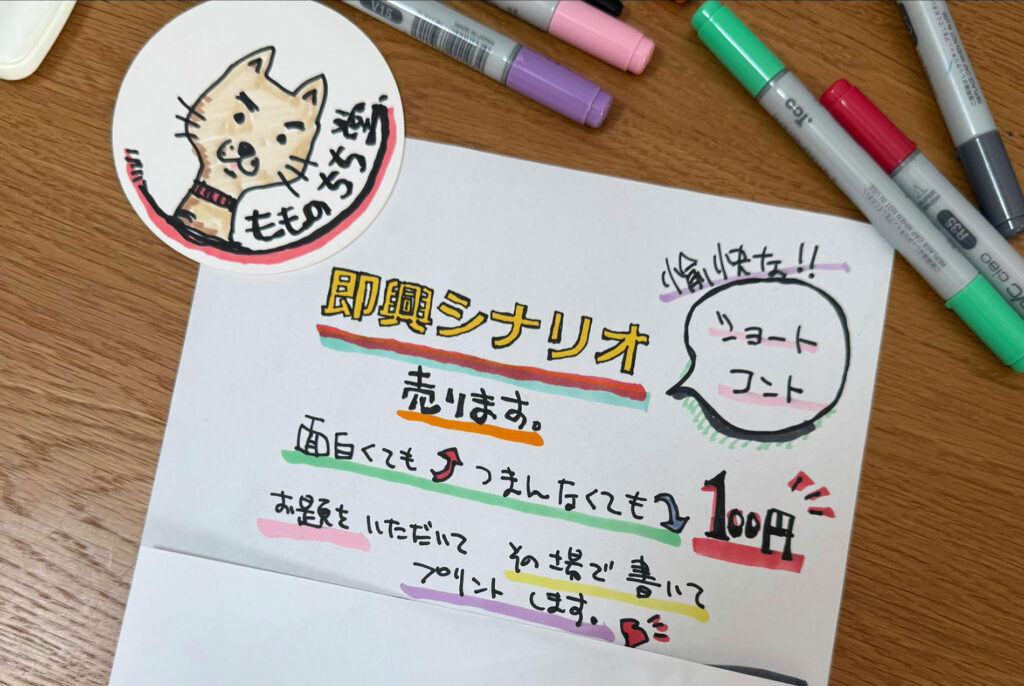 もものちち憲.
即興シナリオ
売ります。
愉快な!!
ショート
コント
面白くても つまんなくても 100円
お題を いただいて その場で 書いて
プリント します。
V15
MADE IN JAPAN
R35
ciao